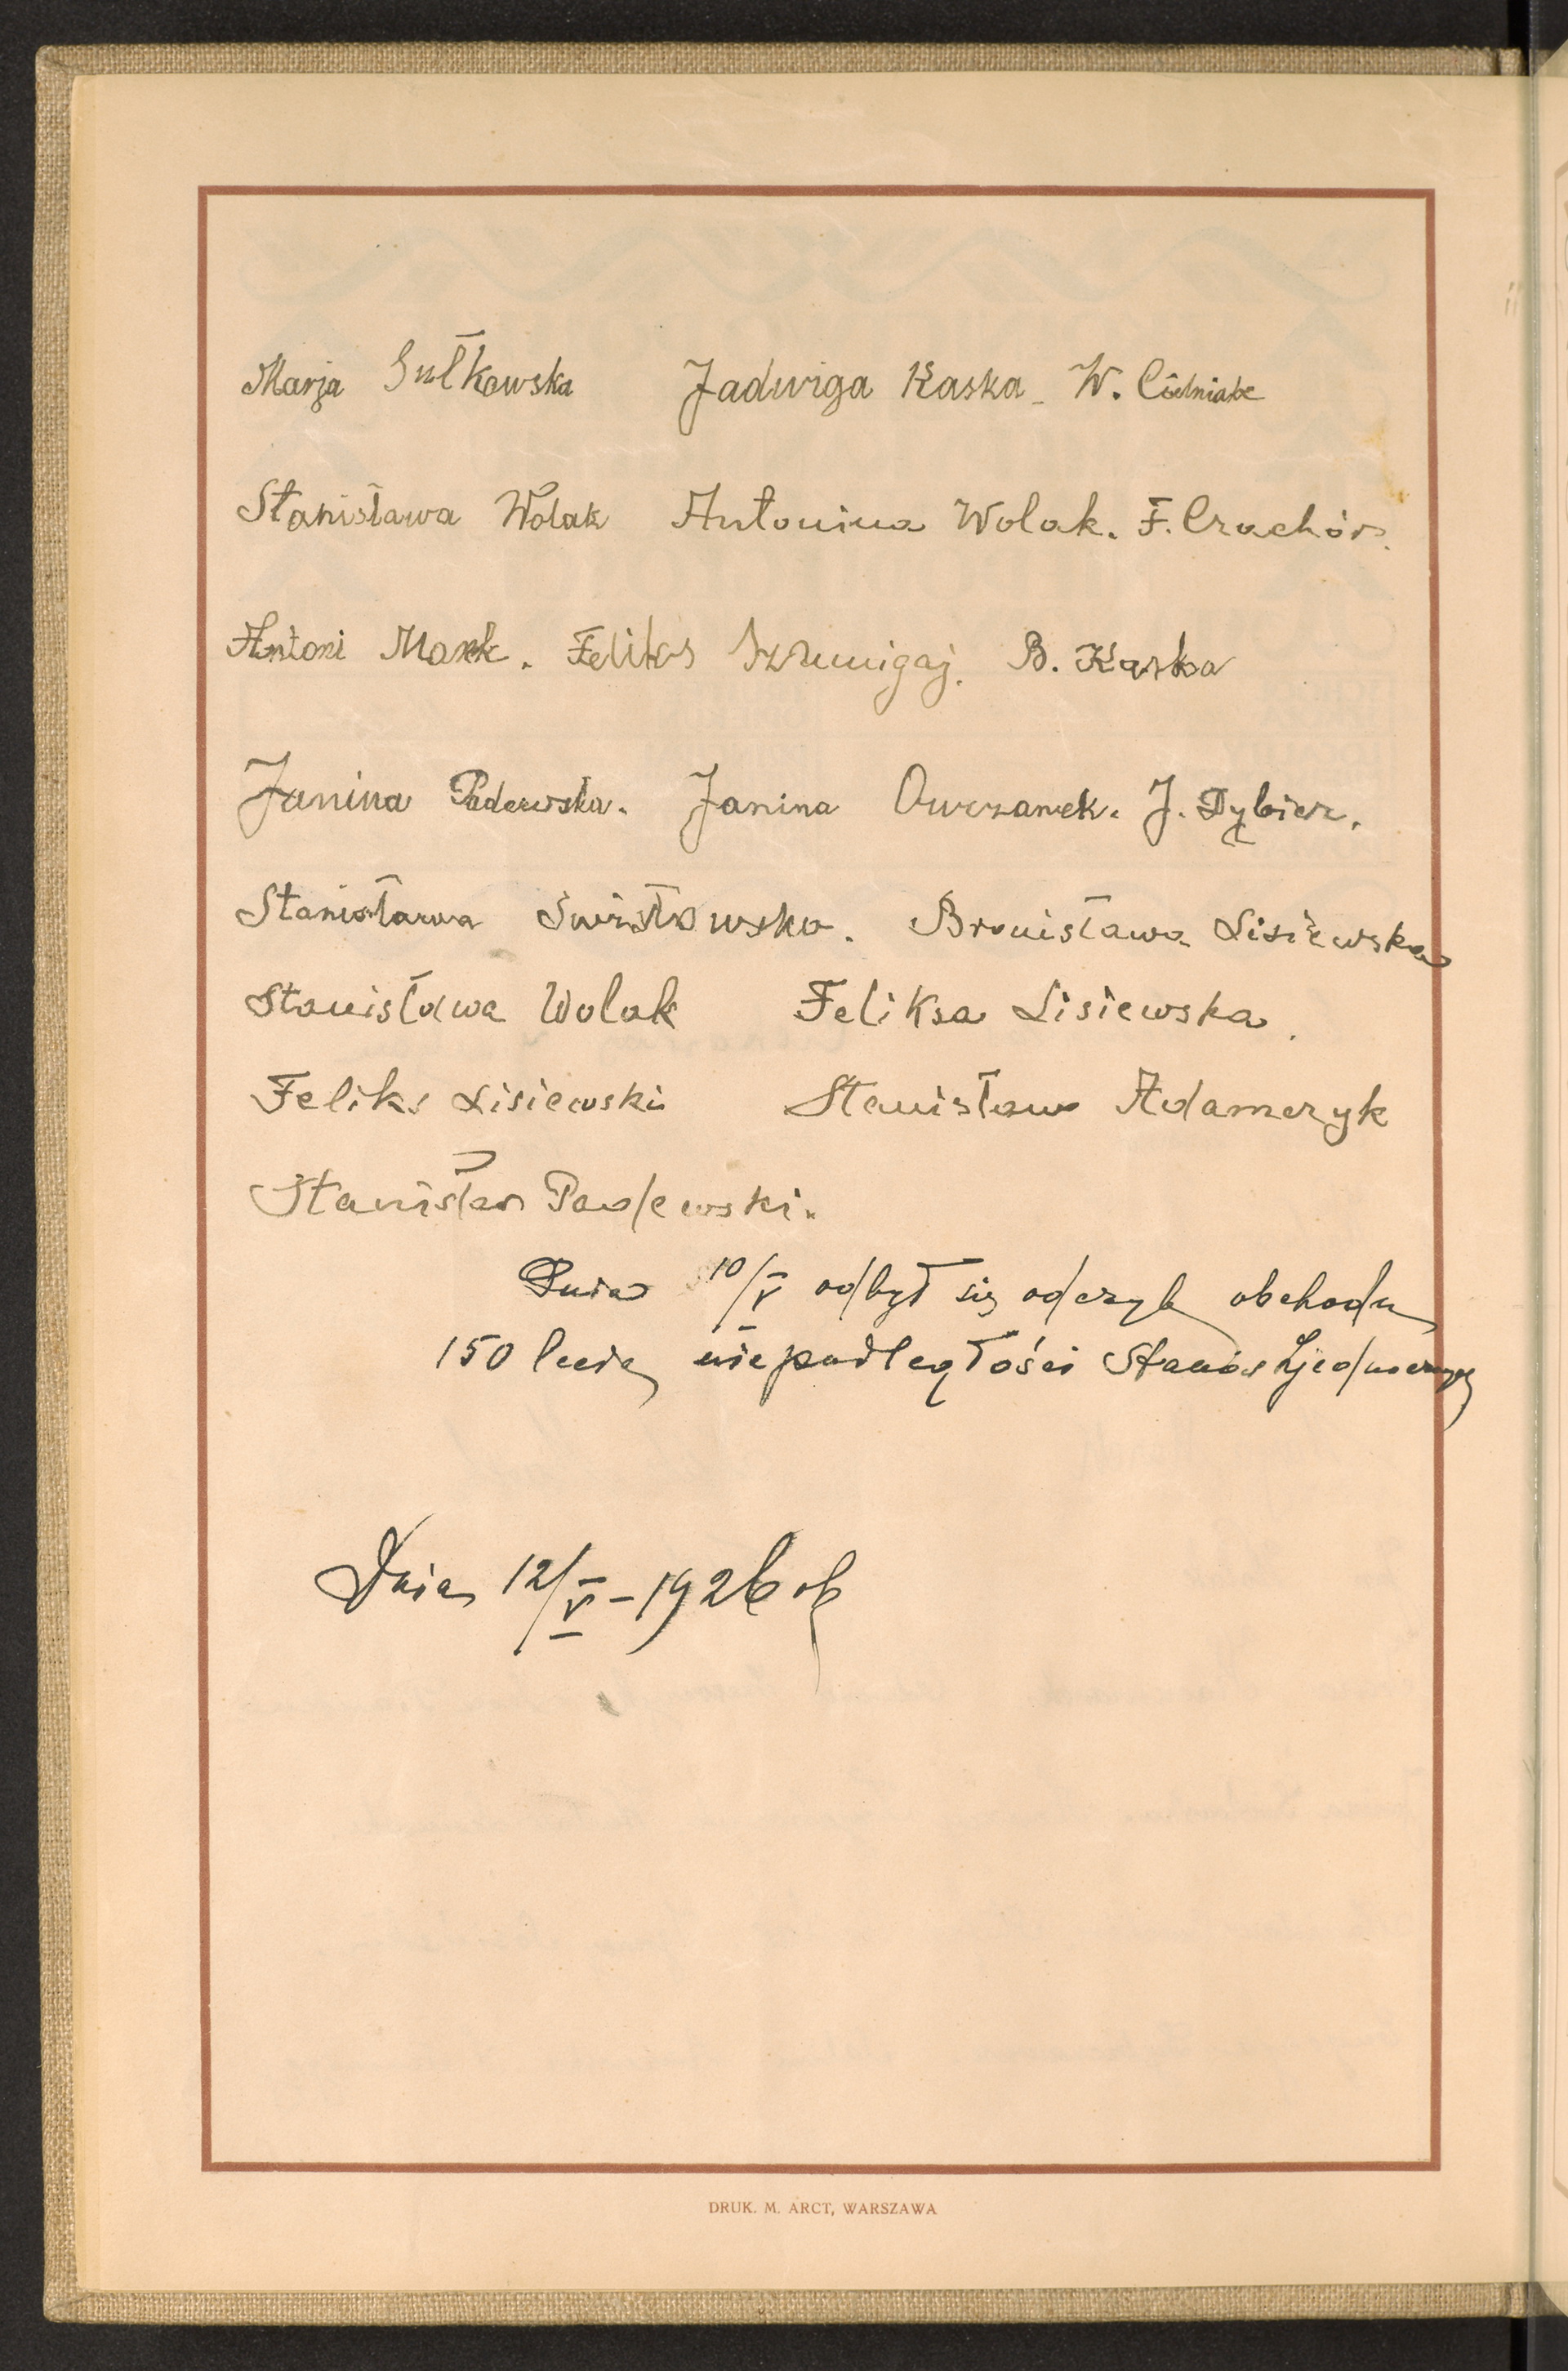 Marja Sułkowska Jadwiga Kaska W. Cielniak
Stanisława Wolak Antonina Wolak. F. Czachór.
Antoni Marek. Feliks B. Kaska
Janina Padewska. Janina Owczarek. J. Dybiec.
Stanisława Świstowska. Bronisława Lisiewska
Stanisława Wolak Feliksa Lisiewska.
Feliks Lisiewski Stanisław Adamczyk
Stanisław Padewski.
Dnia 10/V odbył się odczyt obchodu
150 lecia niepodległości Stanów Zjednoczonych
Dnia 12/V-1926 r.
DRUK. M. ARCT, WARSZAWA